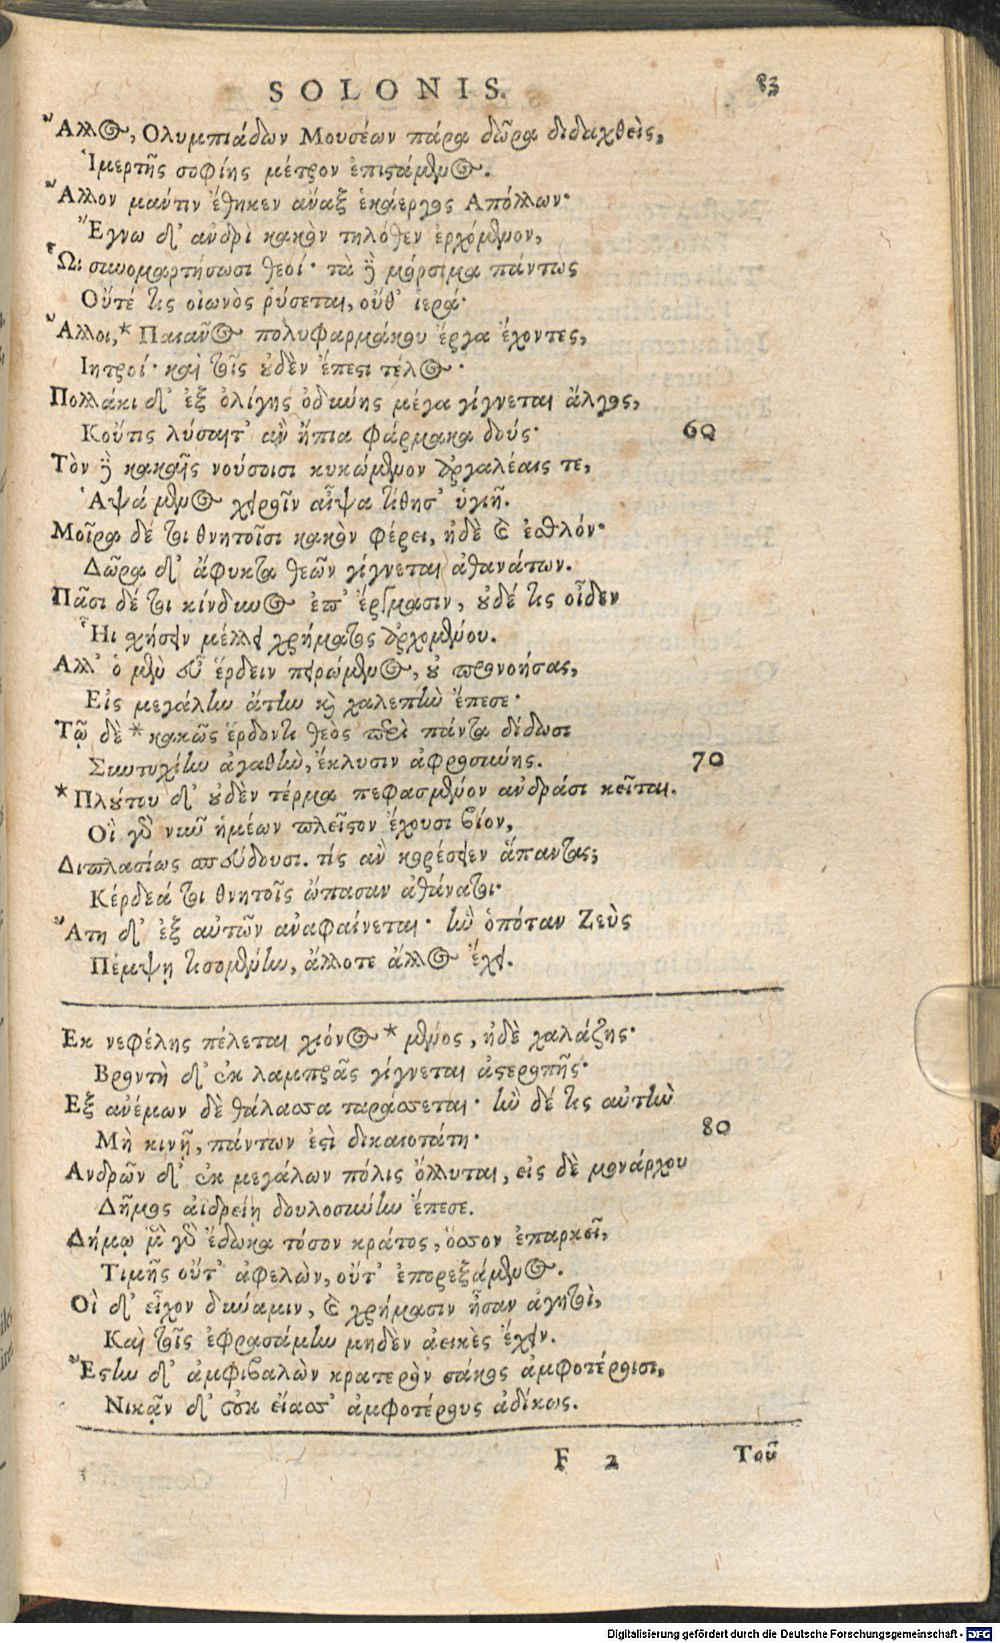 SOLONIS. 83
Ἄλλος, Ολυμπιάδων Μουσέων πάρα δῶρα διδαχθεὶς,
Ἱμερτῆς σοφίης μέτρον ἐπιστάμενος.
Ἄλλον μάντιν ἔθηκεν ἄναξ ἑκάεργος Απόλλων·
Ἔγνω δ' ἀνδρὶ κακὸν τηλόθεν ἐρχόμενον,
Ὧι συνομαρτήσωσι θεοί· τὰ γὰρ μόρσιμα πάντως
Οὔτέ τις οἰωνὸς ῥύσεται, οὔθ' ἱερά·
Ἄλλοι, * Παιανος πολυφαρμάκου ἔργα ἔχοντες,
Ιητροί· καὶ τοῖς οὐδὲν ἔπεστι τέλος·
Πολλάκι δ' ἐξ ὀλίγης ὀδύνης μέγα γίγνεται ἄλγος,
Κοὔτις λύσαιτ' ἂν ἤπια φάρμακα δούς· 60
Τὸν γὰρ κακαῖς νούσοισι κυκώμενον ἀργαλέαις τε,
Ἁψάμενος χειροῖν αἶψα τίθησ' ὑγιῆ.
Μοῖρα δέ τοι θνητοῖσι κακὸν φέρει, ἠδὲ καὶ ἐσθλόν·
Δῶρα δ' ἄφυκτα θεῶν γίγνεται ἀθανάτων.
Πᾶσι δέ τοι κίνδυνος ἐπ' ἔργμασιν, οὐδέ τις οἶδεν
Ἧι χήσειν μέλλει χρήματος ἀρχομένου.
Αλλ' ὁ μὲν εὖ ἕρδειν πειρώμενος, οὐ προνοήσας,
Εἰς μεγάλην ἄτην καὶ χαλεπὴν ἔπεσε·
Τῷ δὲ * κακῶς ἕρδοντι θεὸς περὶ πάντα δίδωσι
Συντυχίην ἀγαθὴν, ἔκλυσιν ἀφροσύνης. 70
* Πλούτου δ' οὐδὲν τέρμα πεφασμένον ἀνδράσι κεῖται.
Οἳ γὰρ νῦν ἡμέων πλεῖστον ἔχουσι βίον,
Διπλασίως σπεύδουσι. τίς ἂν κορέσειεν ἅπαντας;
Κέρδεά τοι θνητοῖς ὤπασαν ἀθάνατοι·
Ἄτη δ' ἐξ αὐτῶν ἀναφαίνεται· ἣν ὁπόταν Ζεὺς
Πέμψῃ τισομένην, ἄλλοτε ἄλλος ἔχει.
Εκ νεφέλης πέλεται χιόνος * μένος, ἠδὲ χαλάζης·
Βροντὴ δ' ἐκ λαμπρᾶς γίγνεται ἀστεροπῆς·
Εξ ἀνέμων δὲ θάλασσα ταράσσεται· ἢν δέ τις αὐτὴν
Μὴ κινῇ, πάντων ἐστὶ δικαιοτάτη· 80
Ανδρῶν δ' ἐκ μεγάλων πόλις ὄλλυται, εἰς δὲ μονάρχου
Δῆμος ἀϊδρείῃ δουλοσύνην ἔπεσε.
Δήμῳ μὲν γὰρ ἔδωκα τόσον κράτος, ὅσσον ἐπαρκεῖ,
Τιμῆς οὔτ' ἀφελὼν, οὔτ' ἐπορεξάμενος.
Οἳ δ' εἶχον δύναμιν, καὶ χρήμασιν ἦσαν ἀγητοὶ,
Καὶ τοῖς ἐφρασάμην μηδὲν ἀεικὲς ἔχειν.
Ἔστην δ' ἀμφιβαλὼν κρατερὸν σάκος ἀμφοτέροισι,
Νικᾷν δ' οὐκ εἴασ' ἀμφοτέρους ἀδίκως.
F 2 Τοῦ
Digitalisierung gefördert durch die Deutsche Forschungsgemeinschaft - DFG